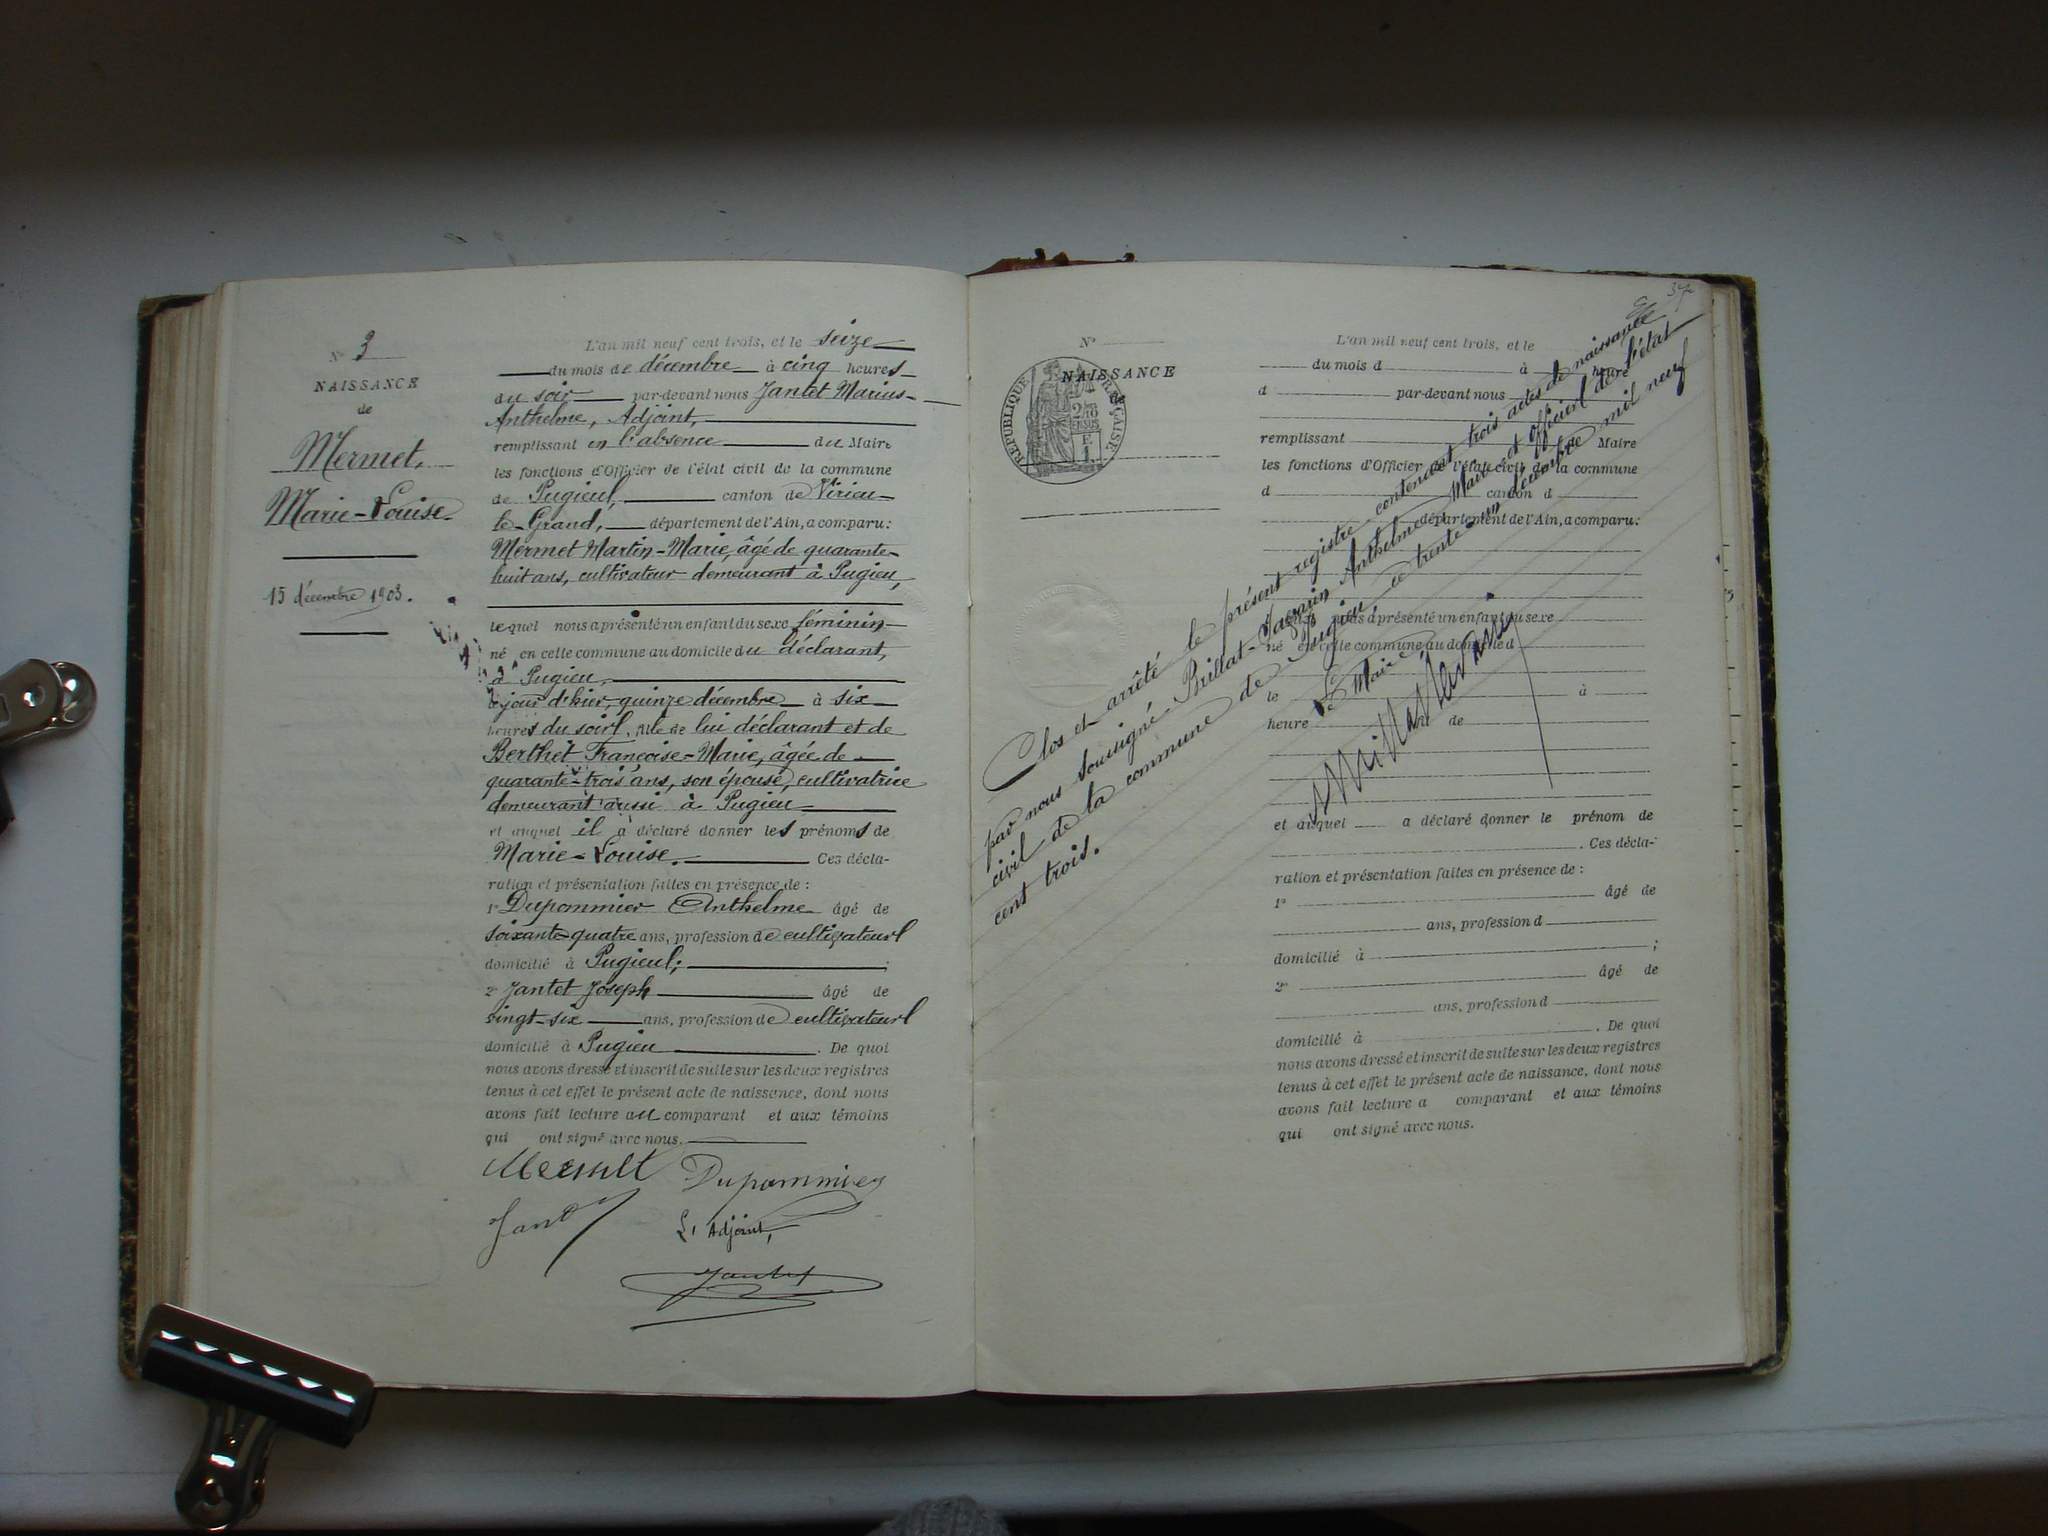 N° 3
NAISSANCE
de
Mermet,
Marie-Louise.
15 décembre 1903.
L'an mil neuf cent trois, et le seize
du mois de décembre à cinq heures
du soir par-devant nous Jantet Marius-
Anthelme, Adjoint,
remplissant en l'absence du Maire
les fonctions d'Officier de l'état civil de la commune
de Pugieu, canton de Virieu-
le-Grand, département de l'Ain, a comparu:
Mermet Martin-Marie, âgé de quarante-
huit ans, cultivateur demeurant à Pugieu,
lequel nous a présenté un enfant du sexe féminin
né en cette commune au domicile du déclarant,
à Pugieu,
le jour d'hier, quinze décembre à six
heures du soir, fille de lui déclarant et de
Berthet Françoise-Marie, âgée de
quarante-trois ans, son épouse, cultivatrice
demeurant aussi à Pugieu
et auquel il a déclaré donner les prénoms de
Marie-Louise. Ces décla-
ration et présentation faites en présence de :
1° Dupommier Anthelme âgé de
soixante-quatre ans, profession de cultivateur
domicilié à Pugieu, ;
2° Jantet Joseph âgé de
vingt-six ans, profession de cultivateur
domicilié à Pugieu . De quoi
nous avons dressé et inscrit de suite sur les deux registres
tenus à cet effet le présent acte de naissance, dont nous
avons fait lecture au comparant et aux témoins
qui ont signé avec nous.
Mermet Dupommier
L'Adjoint,
Jantet
N°
NAISSANCE
de
RÉPUBLIQUE FRANÇAISE
L'an mil neuf cent trois, et le
du mois d à heure
d par-devant nous
remplissant Maire
les fonctions d'Officier de l'état civil de la commune
d canton d
département de l'Ain, a comparu:
nous a présenté un enfant du sexe
né en cette commune au domicile d
le à
heure de
et auquel a déclaré donner le prénom de
. Ces décla-
ration et présentation faites en présence de :
1° âgé de
ans, profession d
domicilié à ;
2° âgé de
ans, profession d
domicilié à . De quoi
nous avons dressé et inscrit de suite sur les deux registres
tenus à cet effet le présent acte de naissance, dont nous
avons fait lecture a comparant et aux témoins
qui ont signé avec nous.
Clos et arrêté le présent registre contenant trois actes de naissance
par nous soussigné Brillat-Savarin Anthelme Maire et officier de l'état
civil de la commune de Pugieu ce trente un décembre mil neuf
cent trois.
Le Maire